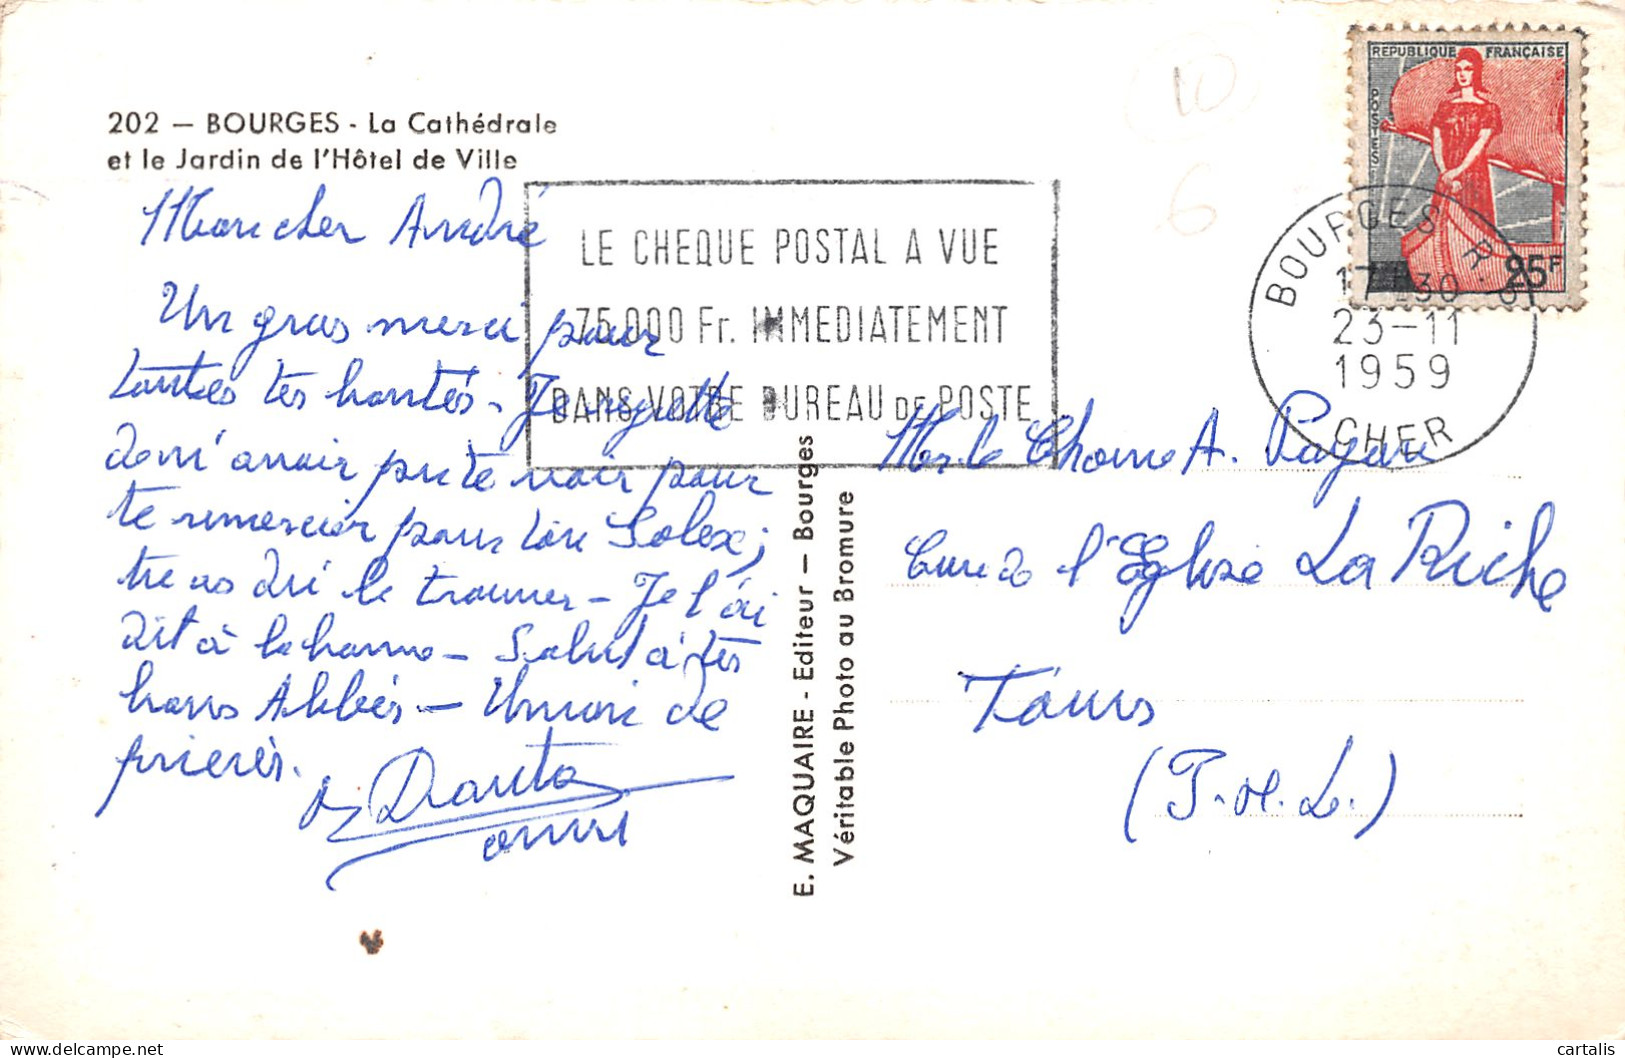 202 — BOURGES - La Cathédrale
et le Jardin de l'Hôtel de Ville
Mon cher André
Un gros merci pour
toutes tes bontés - Je regrette
de n'avoir pu te voir pour
te remercier pour ton Solex ;
tu as dû le trouver - Je l'ai
dit à la bonne - Salut à tes
bons Abbés - Union de
prières.
LE CHEQUE POSTAL A VUE
75.000 Fr. IMMEDIATEMENT
DANS VOTRE BUREAU DE POSTE
E. MAQUAIRE - Editeur — Bourges
Véritable Photo au Bromure
REPUBLIQUE FRANÇAISE
POSTES
25F
BOURGES R.P.
17H30
23-11
1959
CHER
10
6
Mr le Chanoine A.
Curé de l'Eglise La Riche
Tours
(I.&L.)
cartalis